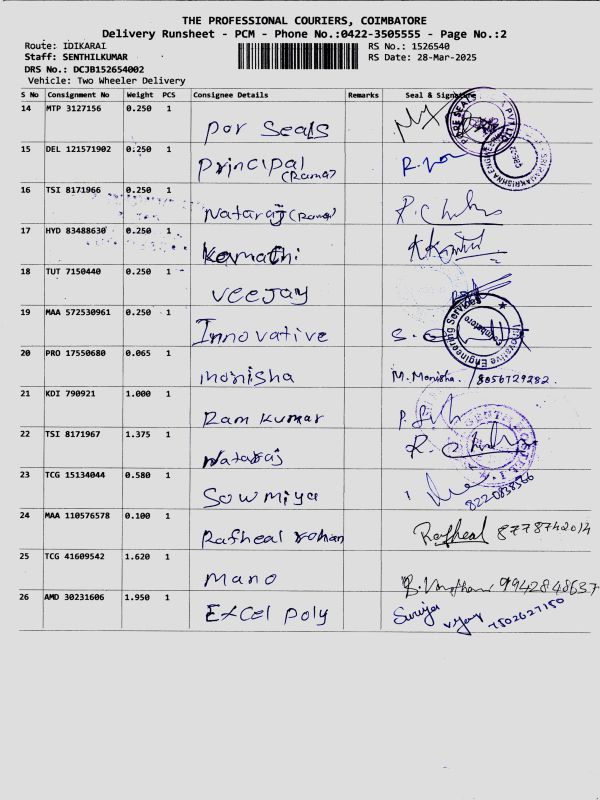 THE PROFESSIONAL COURIERS, COIMBATORE
Delivery Runsheet - PCM - Phone No.:0422-3505555 - Page No.:2
Route: IDIKARAI RS No.: 1526540
Staff: SENTHILKUMAR RS Date: 28-Mar-2025
DRS No.: DCJB152654002
Vehicle: Two Wheeler Delivery
S No Consignment No Weight PCS Consignee Details Remarks Seal & Signature
14 MTP 3127156 0.250 1 Por Seals
15 DEL 121571902 0.250 1 Principal (Rama)
16 TSI 8171966 0.250 1 Nataraj (Rama)
17 HYD 83488630 0.250 1 Kavmathi
18 TUT 7150440 0.250 1 Veejay
19 MAA 572530961 0.250 1 Innovative
Innovative Engineering Services
Coimbatore
20 PRO 17550680 0.065 1 monisha M. Monisha. / 8056729282.
21 KDI 790921 1.000 1 Ram Kumar
22 TSI 8171967 1.375 1 Nataraj
23 TCG 15134044 0.580 1 Sowmiya
24 MAA 110576578 0.100 1 Rafheal rohan Rafheal 8778742014
25 TCG 41609542 1.620 1 Mano 9942848637
26 AMD 30231606 1.950 1 Excel poly Suriya
7502627150